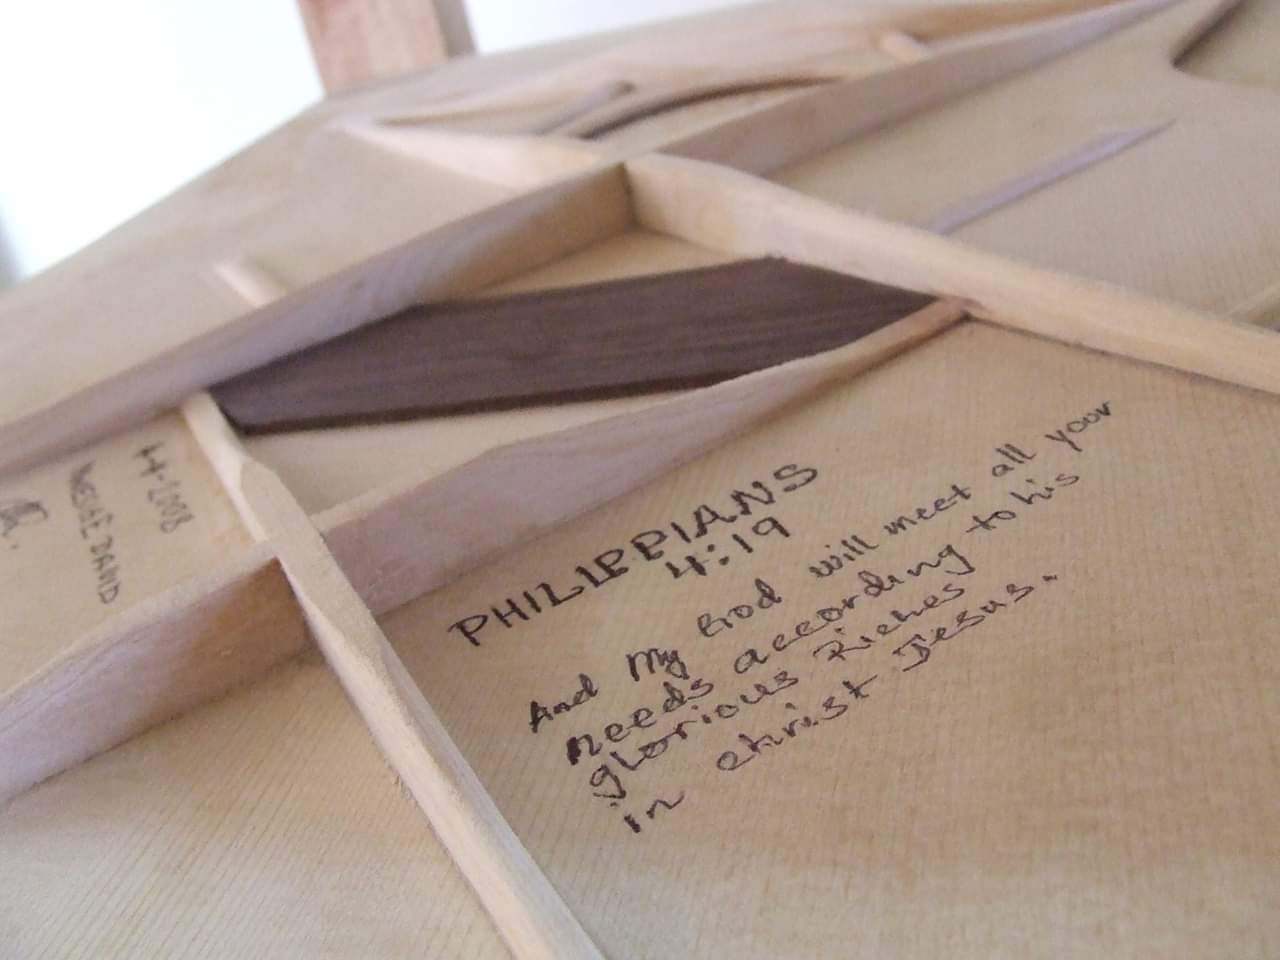 PHILIPPIANS
4:19
And My God will meet all your
needs according to his
glorious Riches
in christ Jesus.
2008